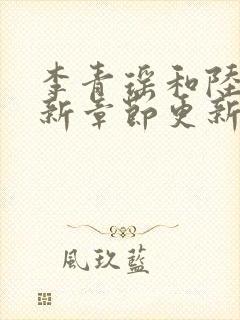 李青瑶和陸
新章節更新
風玖藍